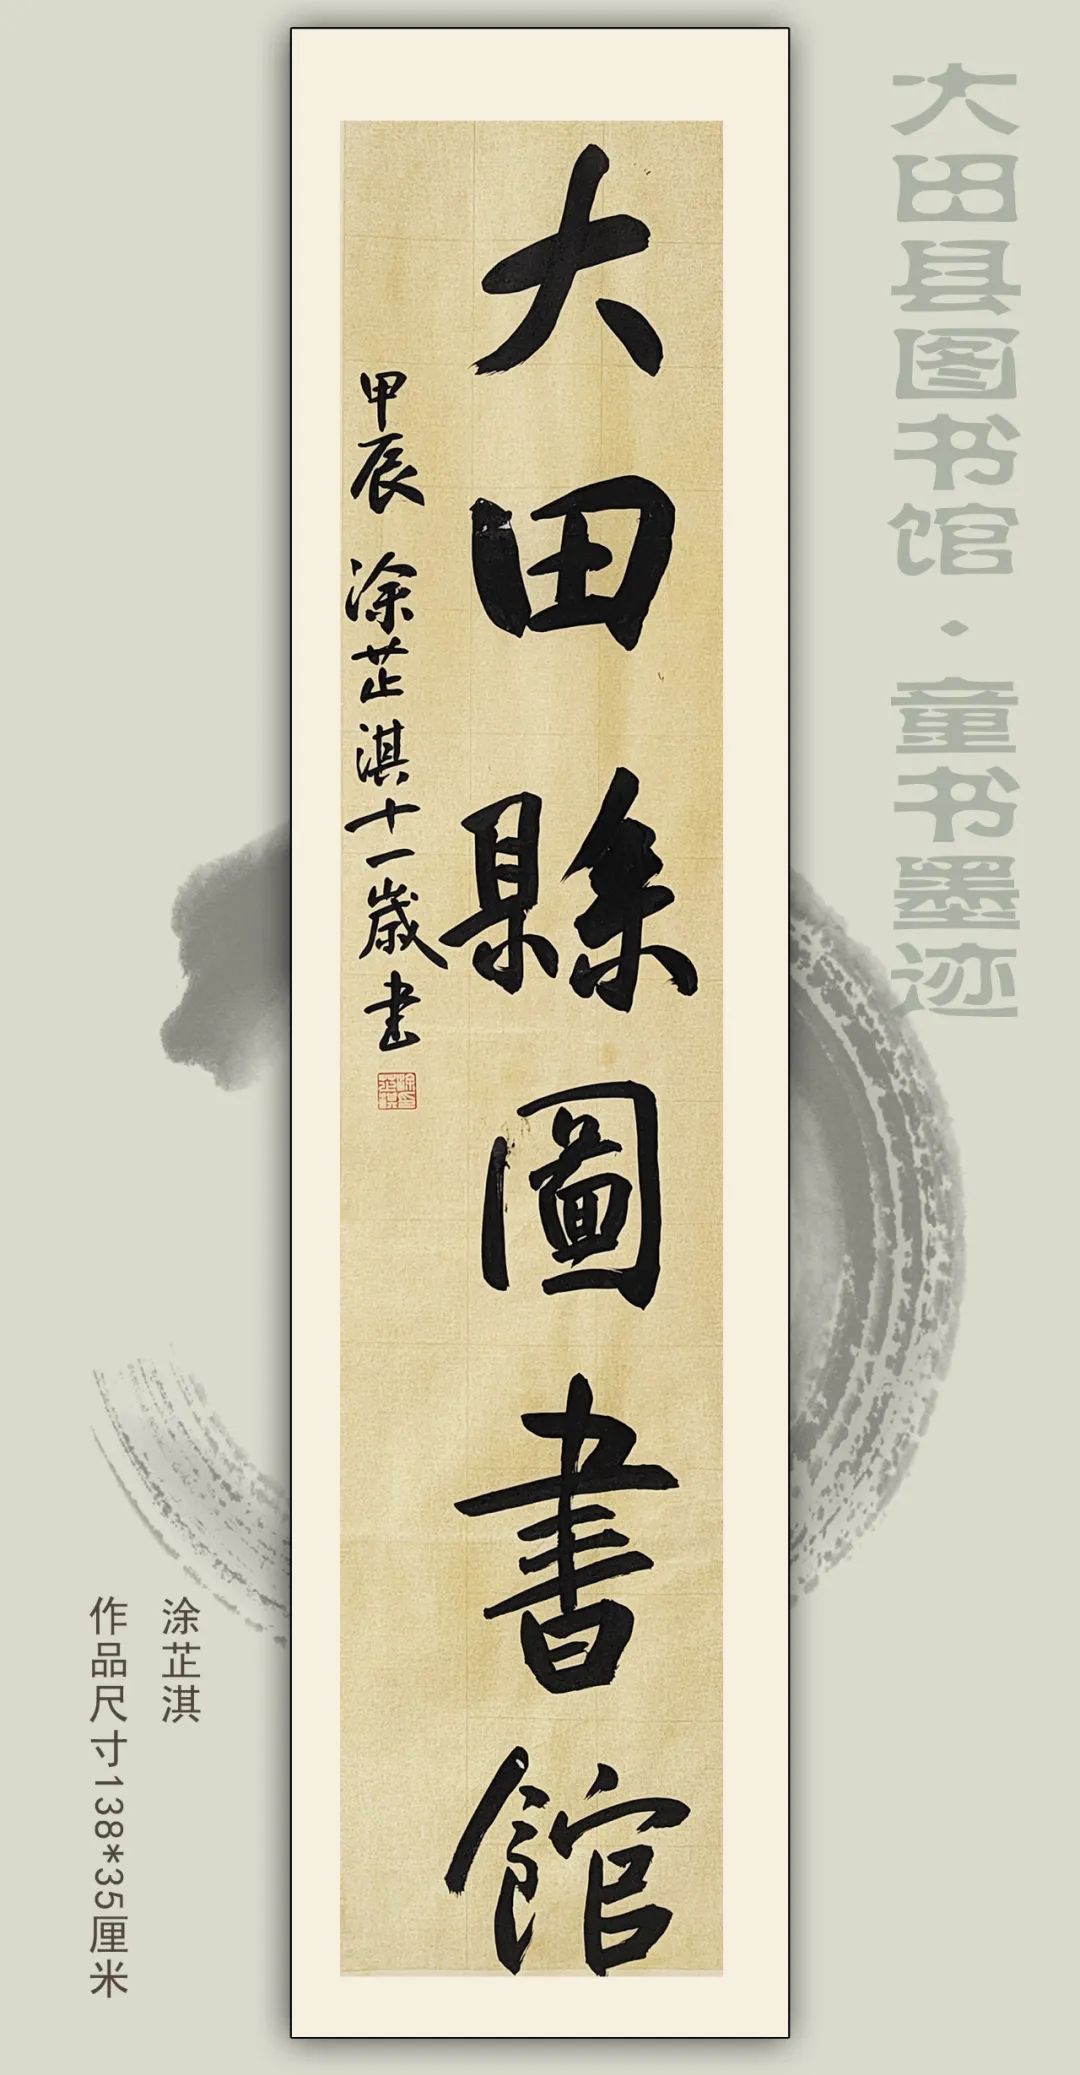 大田县图书馆·童书墨迹
大田縣圖書館
甲辰 涂芷淇十一歲書
涂芷淇
作品尺寸138*35厘米